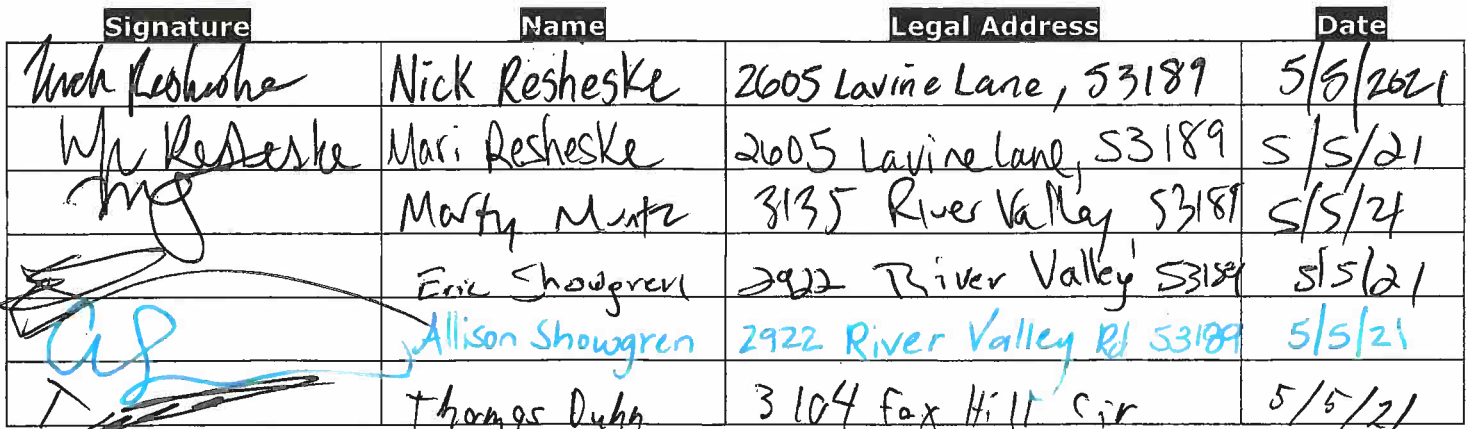 Signature Name Legal Address Date
Nick Resheske Nick Resheske 2605 Lavine Lane, 53189 5/5/2021
Resheske Mari Resheske 2605 Lavine Lane, 53189 5/5/21
Marty Muntz 3135 River Valley 53189 5/5/21
Eric Showgren 2922 River Valley 53189 5/5/21
AS Allison Showgren 2922 River Valley Rd 53189 5/5/21
Thomas Duhn 3104 Fox Hill Cir 5/5/21